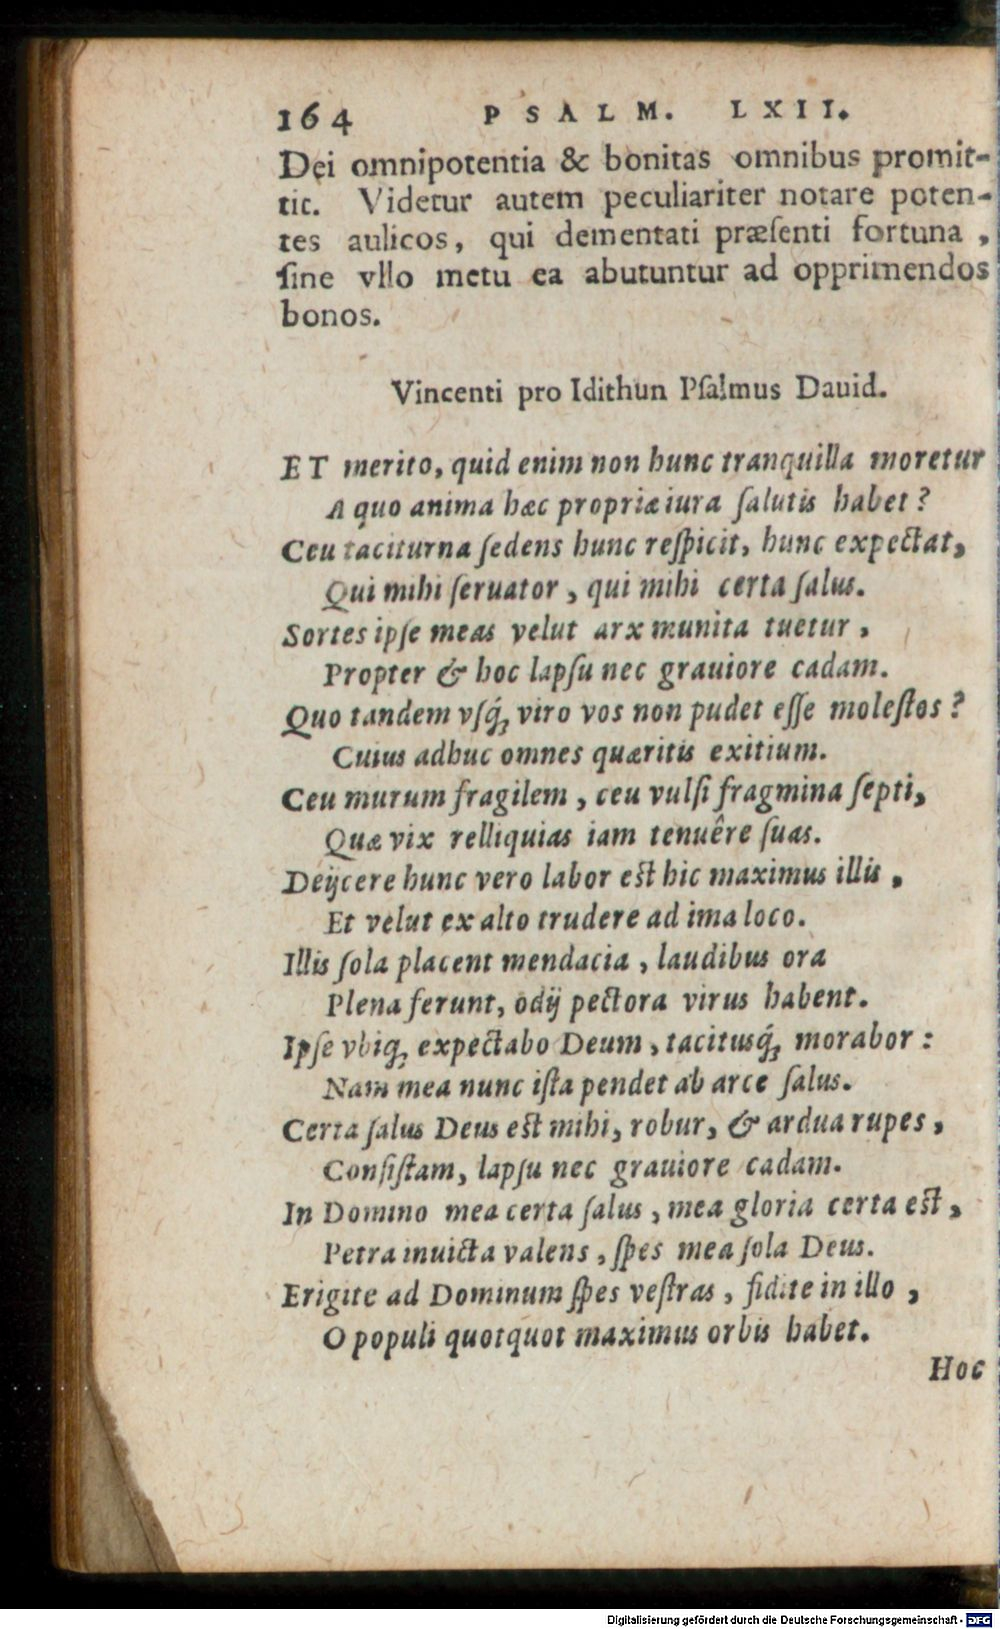 164 PSALM. LXII.
Dei omnipotentia & bonitas omnibus promit-
tit. Videtur autem peculiariter notare poten-
tes aulicos, qui dementati præſenti fortuna,
ſine vllo metu ea abutuntur ad opprimendos
bonos.
Vincenti pro Idithun Pſalmus Dauid.
ET merito, quid enim non hunc tranquilla moretur
A quo anima hæc propriæ iura ſalutis habet?
Ceu taciturna ſedens hunc reſpicit, hunc expectat,
Qui mihi ſeruator, qui mihi certa ſalus.
Sortes ipſe meas velut arx munita tuetur,
Propter & hoc lapſu nec grauiore cadam.
Quo tandem vſq́ꝫ viro vos non pudet eſſe moleſtos?
Cuius adhuc omnes quæritis exitium.
Ceu murum fragilem, ceu vulſi fragmina ſepti,
Quæ vix relliquias iam tenuêre ſuas.
Deijcere hunc vero labor est hic maximus illis,
Et velut ex alto trudere ad ima loco.
Illis ſola placent mendacia, laudibus ora
Plena ferunt, odij pectora virus habent.
Ipſe vbiqꝫ expectabo Deum, tacitusq́ꝫ morabor:
Nam mea nunc iſta pendet ab arce ſalus.
Certa ſalus Deus est mihi, robur, & ardua rupes,
Conſiſtam, lapſu nec grauiore cadam.
In Domino mea certa ſalus, mea gloria certa est,
Petra inuicta valens, ſpes mea ſola Deus.
Erigite ad Dominum ſpes veſtras, fidite in illo,
O populi quotquot maximus orbis habet.
Hoc
Digitalisierung gefördert durch die Deutsche Forschungsgemeinschaft - DFG